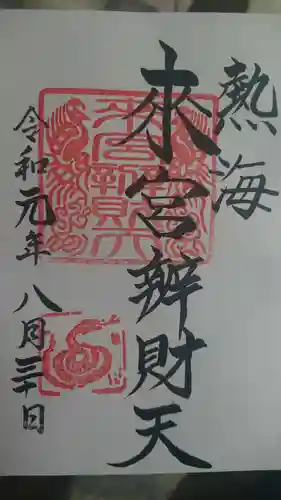 熱海
来宮辨財天
令和元年八月三十日